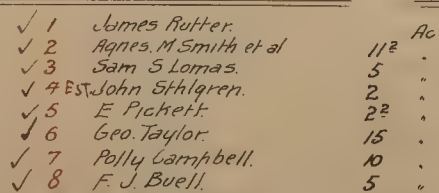 Ac
✓ 1 James Rutter.
✓ 2 Agnes. M Smith et al 11² "
✓ 3 Sam S Lomas. 5 "
✓ 4 Est. John Sthlgren. 2 "
✓ 5 E Pickett. 2² "
✓ 6 Geo. Taylor. 15 "
✓ 7 Polly Campbell. 10 "
✓ 8 F. J. Buell. 5 "